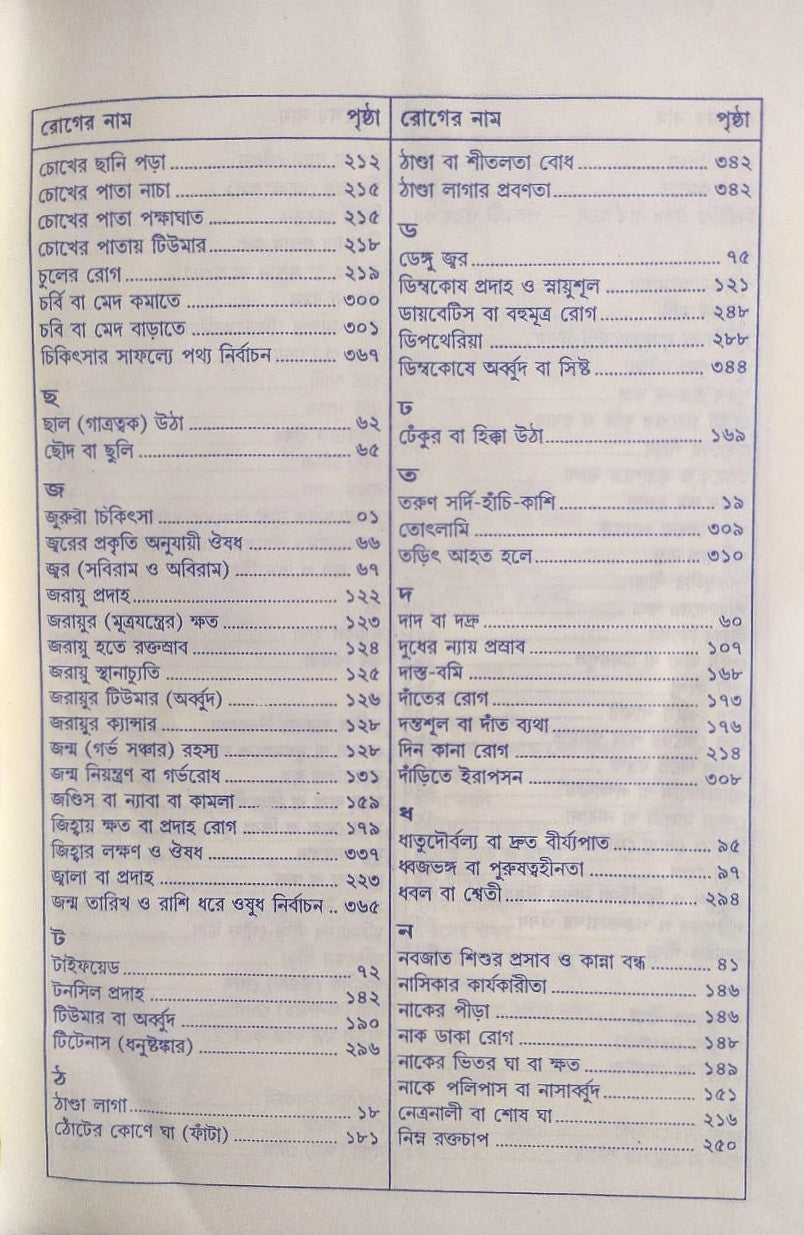 রোগের নাম পৃষ্ঠা
চোখের ছানি পড়া ২১২
চোখের পাতা নাচা ২১৫
চোখের পাতা পক্ষাঘাত ২১৫
চোখের পাতায় টিউমার ২১৮
চুলের রোগ ২১৯
চর্বি বা মেদ কমাতে ৩০০
চবি বা মেদ বাড়াতে ৩০১
চিকিৎসার সাফল্যে পথ্য নির্বাচন ৩৬৭
ছ
ছাল (গাত্রত্বক) উঠা ৬২
ছৌদ বা ছুলি ৬৫
জ
জরুরী চিকিৎসা ০১
জ্বরের প্রকৃতি অনুযায়ী ঔষধ ৬৬
জ্বর (সবিরাম ও অবিরাম) ৬৭
জরায়ু প্রদাহ ১২২
জরায়ুর (মূত্রযন্ত্রের) ক্ষত ১২৩
জরায়ু হতে রক্তস্রাব ১২৪
জরায়ু স্থানাচ্যুতি ১২৫
জরায়ুর টিউমার (অর্ব্বুদ) ১২৬
জরায়ুর ক্যান্সার ১২৮
জন্ম (গর্ভ সঞ্চার) রহস্য ১২৮
জন্ম নিয়ন্ত্রণ বা গর্ভরোধ ১৩১
জণ্ডিস বা ন্যাবা বা কামলা ১৫৯
জিহ্বায় ক্ষত বা প্রদাহ রোগ ১৭৯
জিহ্বার লক্ষণ ও ঔষধ ৩৩৭
জ্বালা বা প্রদাহ ২২৩
জন্ম তারিখ ও রাশি ধরে ওষুধ নির্বাচন ৩৬৫
ট
টাইফয়েড ৭২
টনসিল প্রদাহ ১৪২
টিউমার বা অর্ব্বুদ ১৯০
টিটেনাস (ধনুষ্টঙ্কার) ২৯৬
ঠ
ঠাণ্ডা লাগা ১৮
ঠোঁটের কোণে ঘা (ফাঁটা) ১৮১
রোগের নাম পৃষ্ঠা
ঠাণ্ডা বা শীতলতা বোধ ৩৪২
ঠাণ্ডা লাগার প্রবণতা ৩৪২
ড
ডেঙ্গু জ্বর ৭৫
ডিম্বকোষ প্রদাহ ও স্নায়ুশূল ১২১
ডায়বেটিস বা বহুমূত্র রোগ ২৪৮
ডিপথেরিয়া ২৮৮
ডিম্বকোষে অর্ব্বুদ বা সিষ্ট ৩৪৪
ঢ
ঢেঁকুর বা হিক্কা উঠা ১৬৯
ত
তরুণ সর্দি-হাঁচি-কাশি ১৯
তোৎলামি ৩০৯
তড়িৎ আহত হলে ৩১০
দ
দাদ বা দদ্রু ৬০
দুধের ন্যায় প্রস্রাব ১০৭
দাস্ত-বমি ১৬৮
দাঁতের রোগ ১৭৩
দন্তশূল বা দাঁত ব্যথা ১৭৬
দিন কানা রোগ ২১৪
দাঁড়িতে ইরাপসন ৩০৮
ধ
ধাতুদৌর্বল্য বা দ্রুত বীর্য্যপাত ৯৫
ধ্বজভঙ্গ বা পুরুষত্বহীনতা ৯৭
ধবল বা শ্বেতী ২৯৪
ন
নবজাত শিশুর প্রসাব ও কান্না বন্ধ ৪১
নাসিকার কার্যকারীতা ১৪৬
নাকের পীড়া ১৪৬
নাক ডাকা রোগ ১৪৮
নাকের ভিতর ঘা বা ক্ষত ১৪৯
নাকে পলিপাস বা নাসার্ব্বুদ ১৫১
নেত্রনালী বা শোষ ঘা ২১৬
নিম্ন রক্তচাপ ২৫০